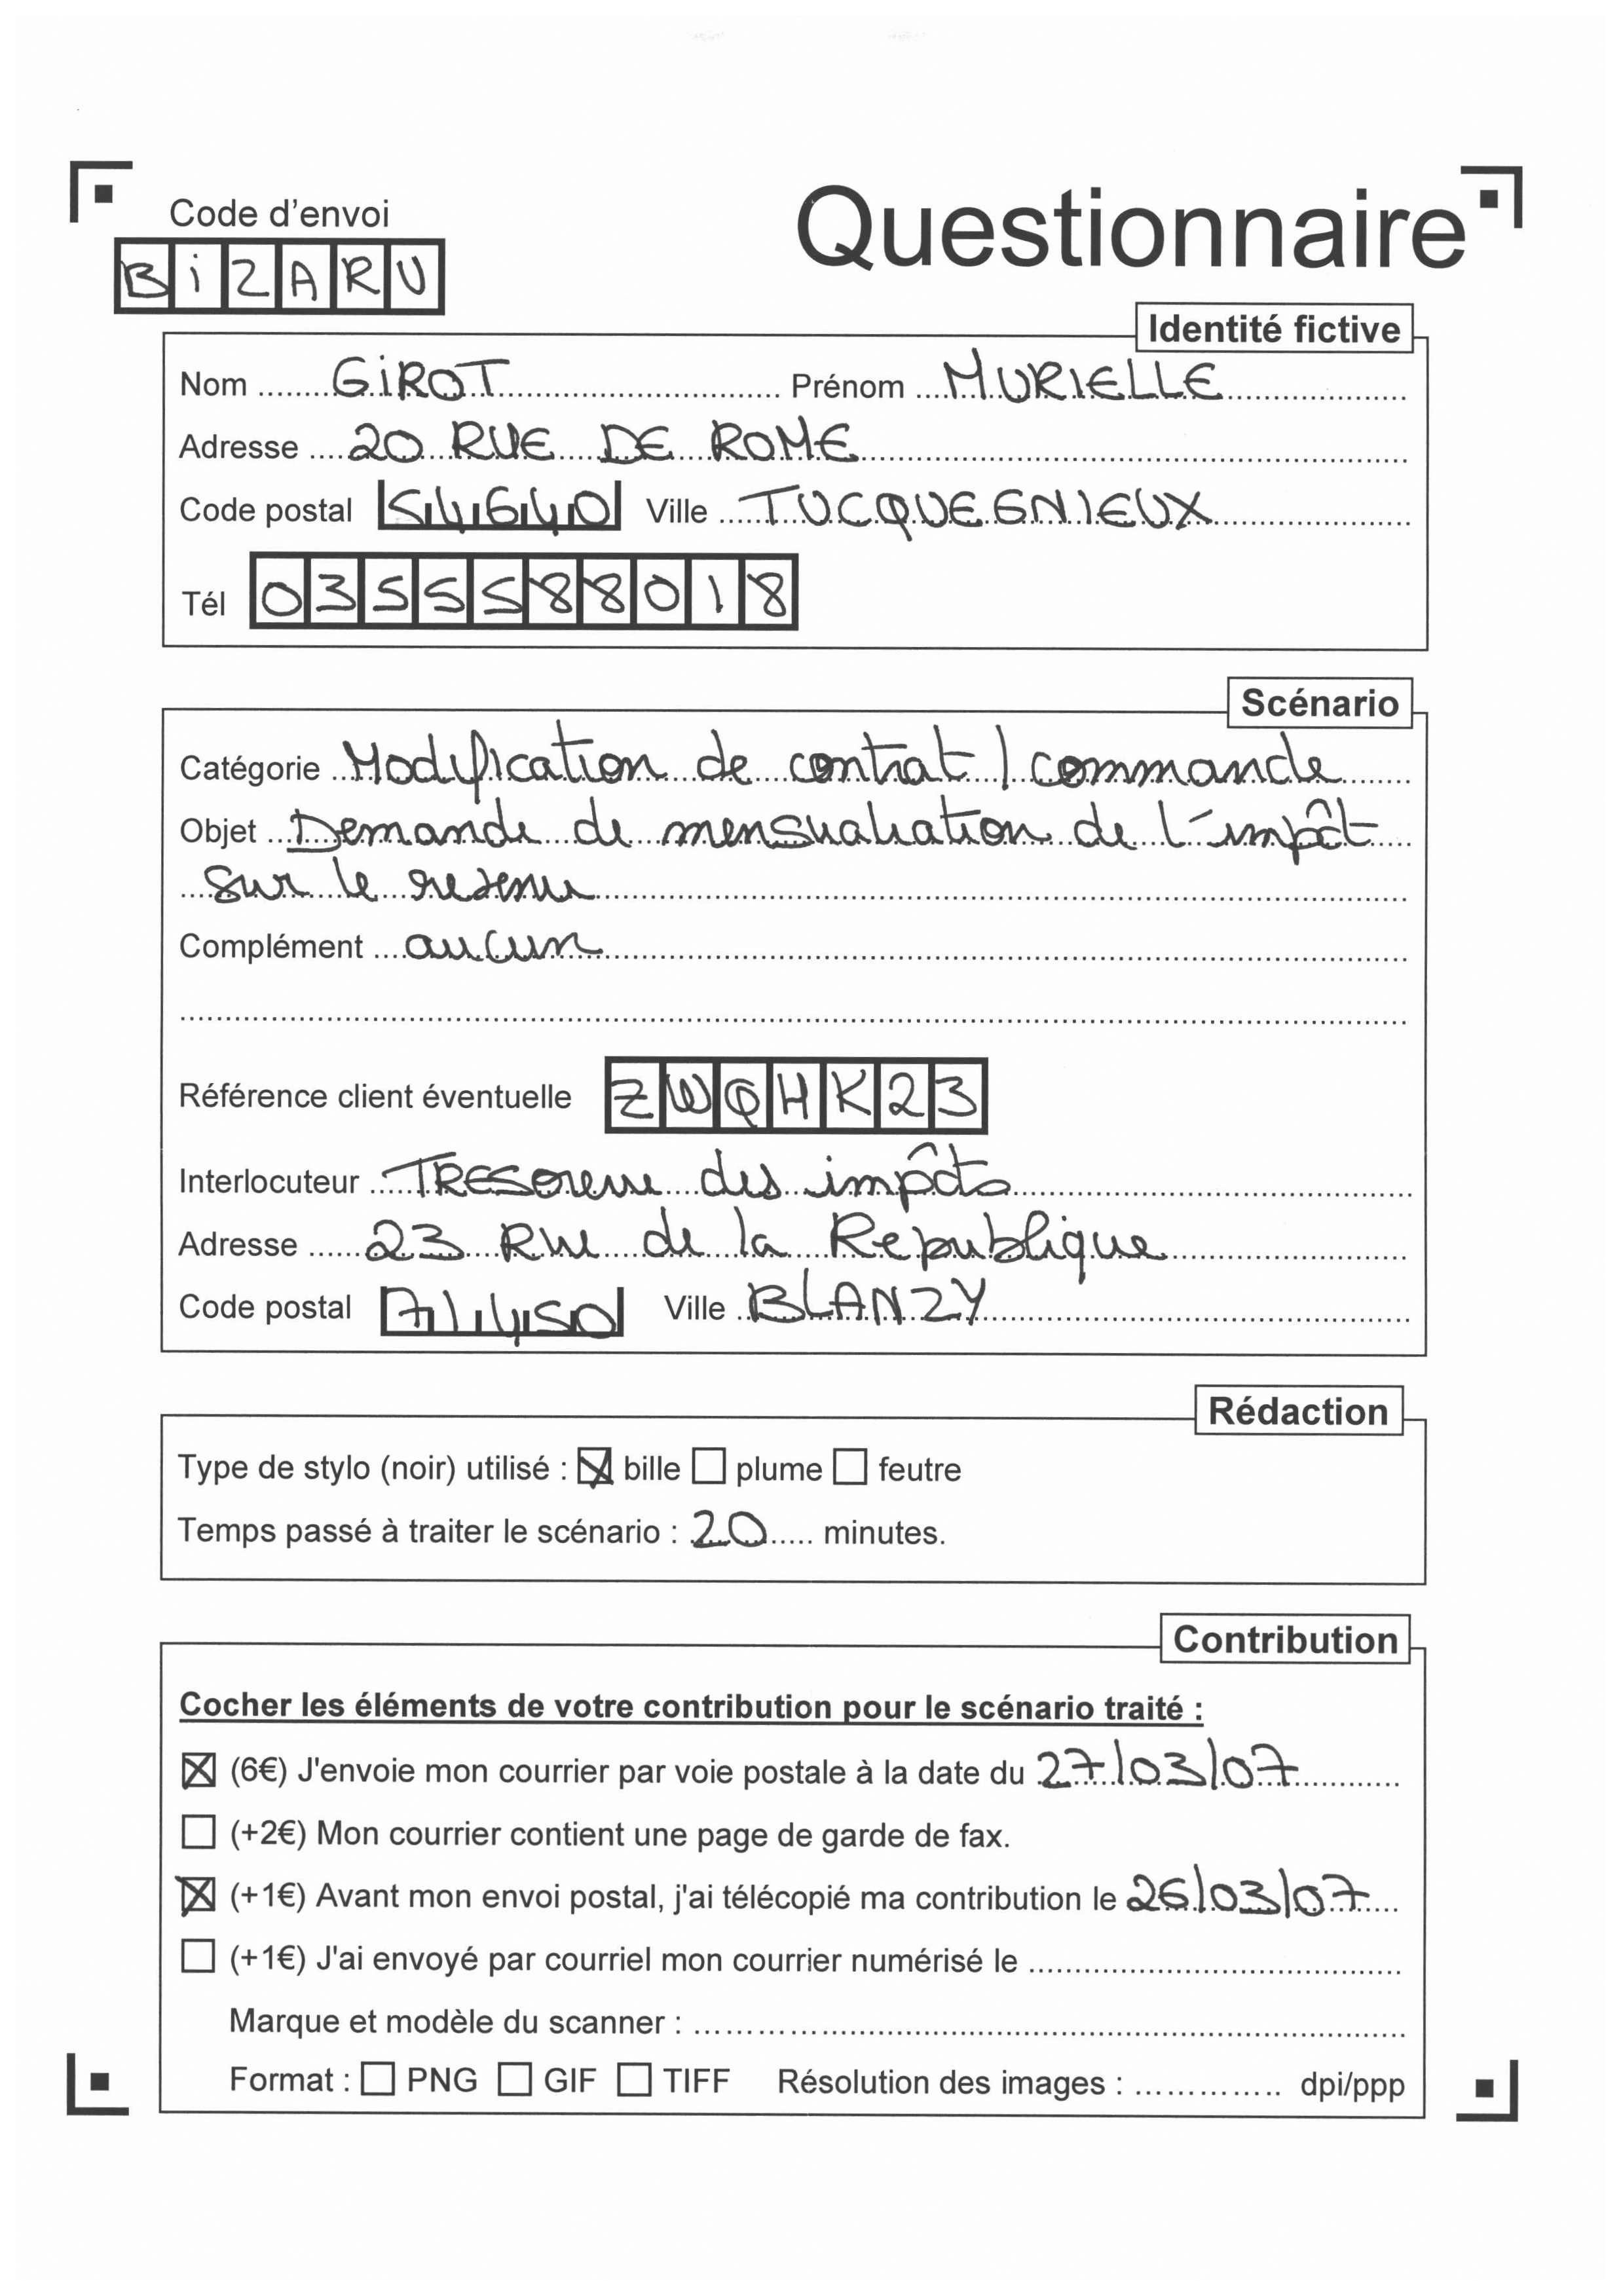 Code d'envoi
Questionnaire
BiZARU
Identité fictive
Nom GiROT Prénom MURIELLE
Adresse 20 RUE DE ROME
Code postal 54640 Ville TUCQUEGNIEUX
Tél 0355588018
Scénario
Catégorie Modification de contrat / commande
Objet Demande de mensualiation de l'impôt
sur le revenu
Complément aucun
Référence client éventuelle ZWQHK23
Interlocuteur TRESorerie des impôts
Adresse 23 Rue de la Republique
Code postal 71450 Ville BLANZY
Rédaction
Type de stylo (noir) utilisé : ☒ bille ☐ plume ☐ feutre
Temps passé à traiter le scénario : 20 minutes.
Contribution
Cocher les éléments de votre contribution pour le scénario traité :
☒ (6€) J'envoie mon courrier par voie postale à la date du 27/03/07
☐ (+2€) Mon courrier contient une page de garde de fax.
☒ (+1€) Avant mon envoi postal, j'ai télécopié ma contribution le 26/03/07
☐ (+1€) J'ai envoyé par courriel mon courrier numérisé le
Marque et modèle du scanner :
Format : ☐ PNG ☐ GIF ☐ TIFF Résolution des images : dpi/ppp